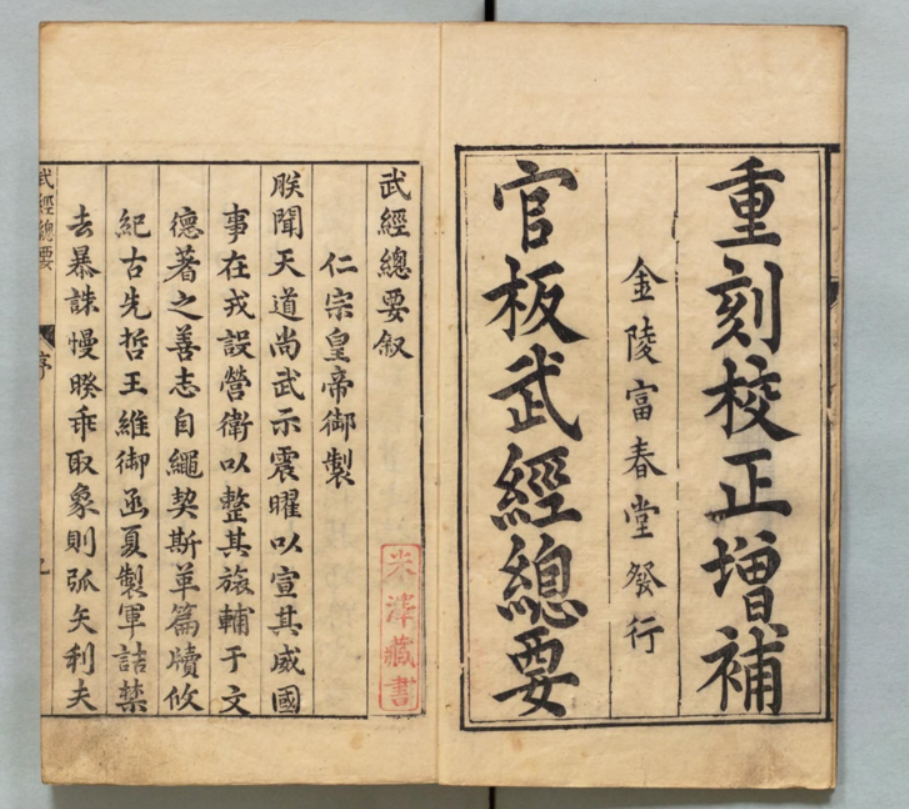 重刻校正增補
金陵富春堂發行
官板武經總要
武經總要叙
米澤藏書
仁宗皇帝御製
朕聞天道尚武示震曜以宣其威國
事在戎設營衛以整其旅輔于文
德著之善志自繩契斯革篇牘攸
紀古先哲王維御函夏製軍詰禁
去暴誅慢睽乖取象則弧矢利夫
武經總要
序